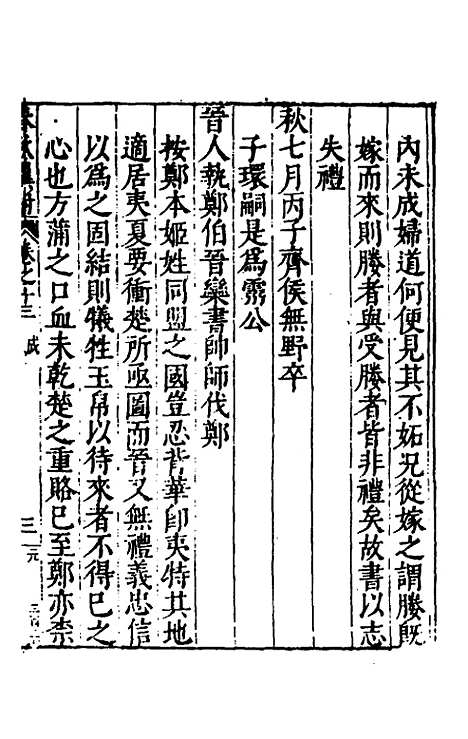 內未成婦道何便見其不妬況從嫁之謂媵既
嫁而來則媵者與受媵者皆非禮矣故書以志
失禮
秋七月丙子齊侯無野卒
子環嗣是爲靈公
晉人執鄭伯晉欒書帥師伐鄭
按鄭本姬姓同盟之國豈忍背華即夷特其地
適居夷夏要衝楚所亟圖而晉又無禮義忠信
以爲之固結則犧牲玉帛以待來者不得已之
心也方蒲之口血未乾楚之重賂已至鄭亦柰
卷之十三 成
三